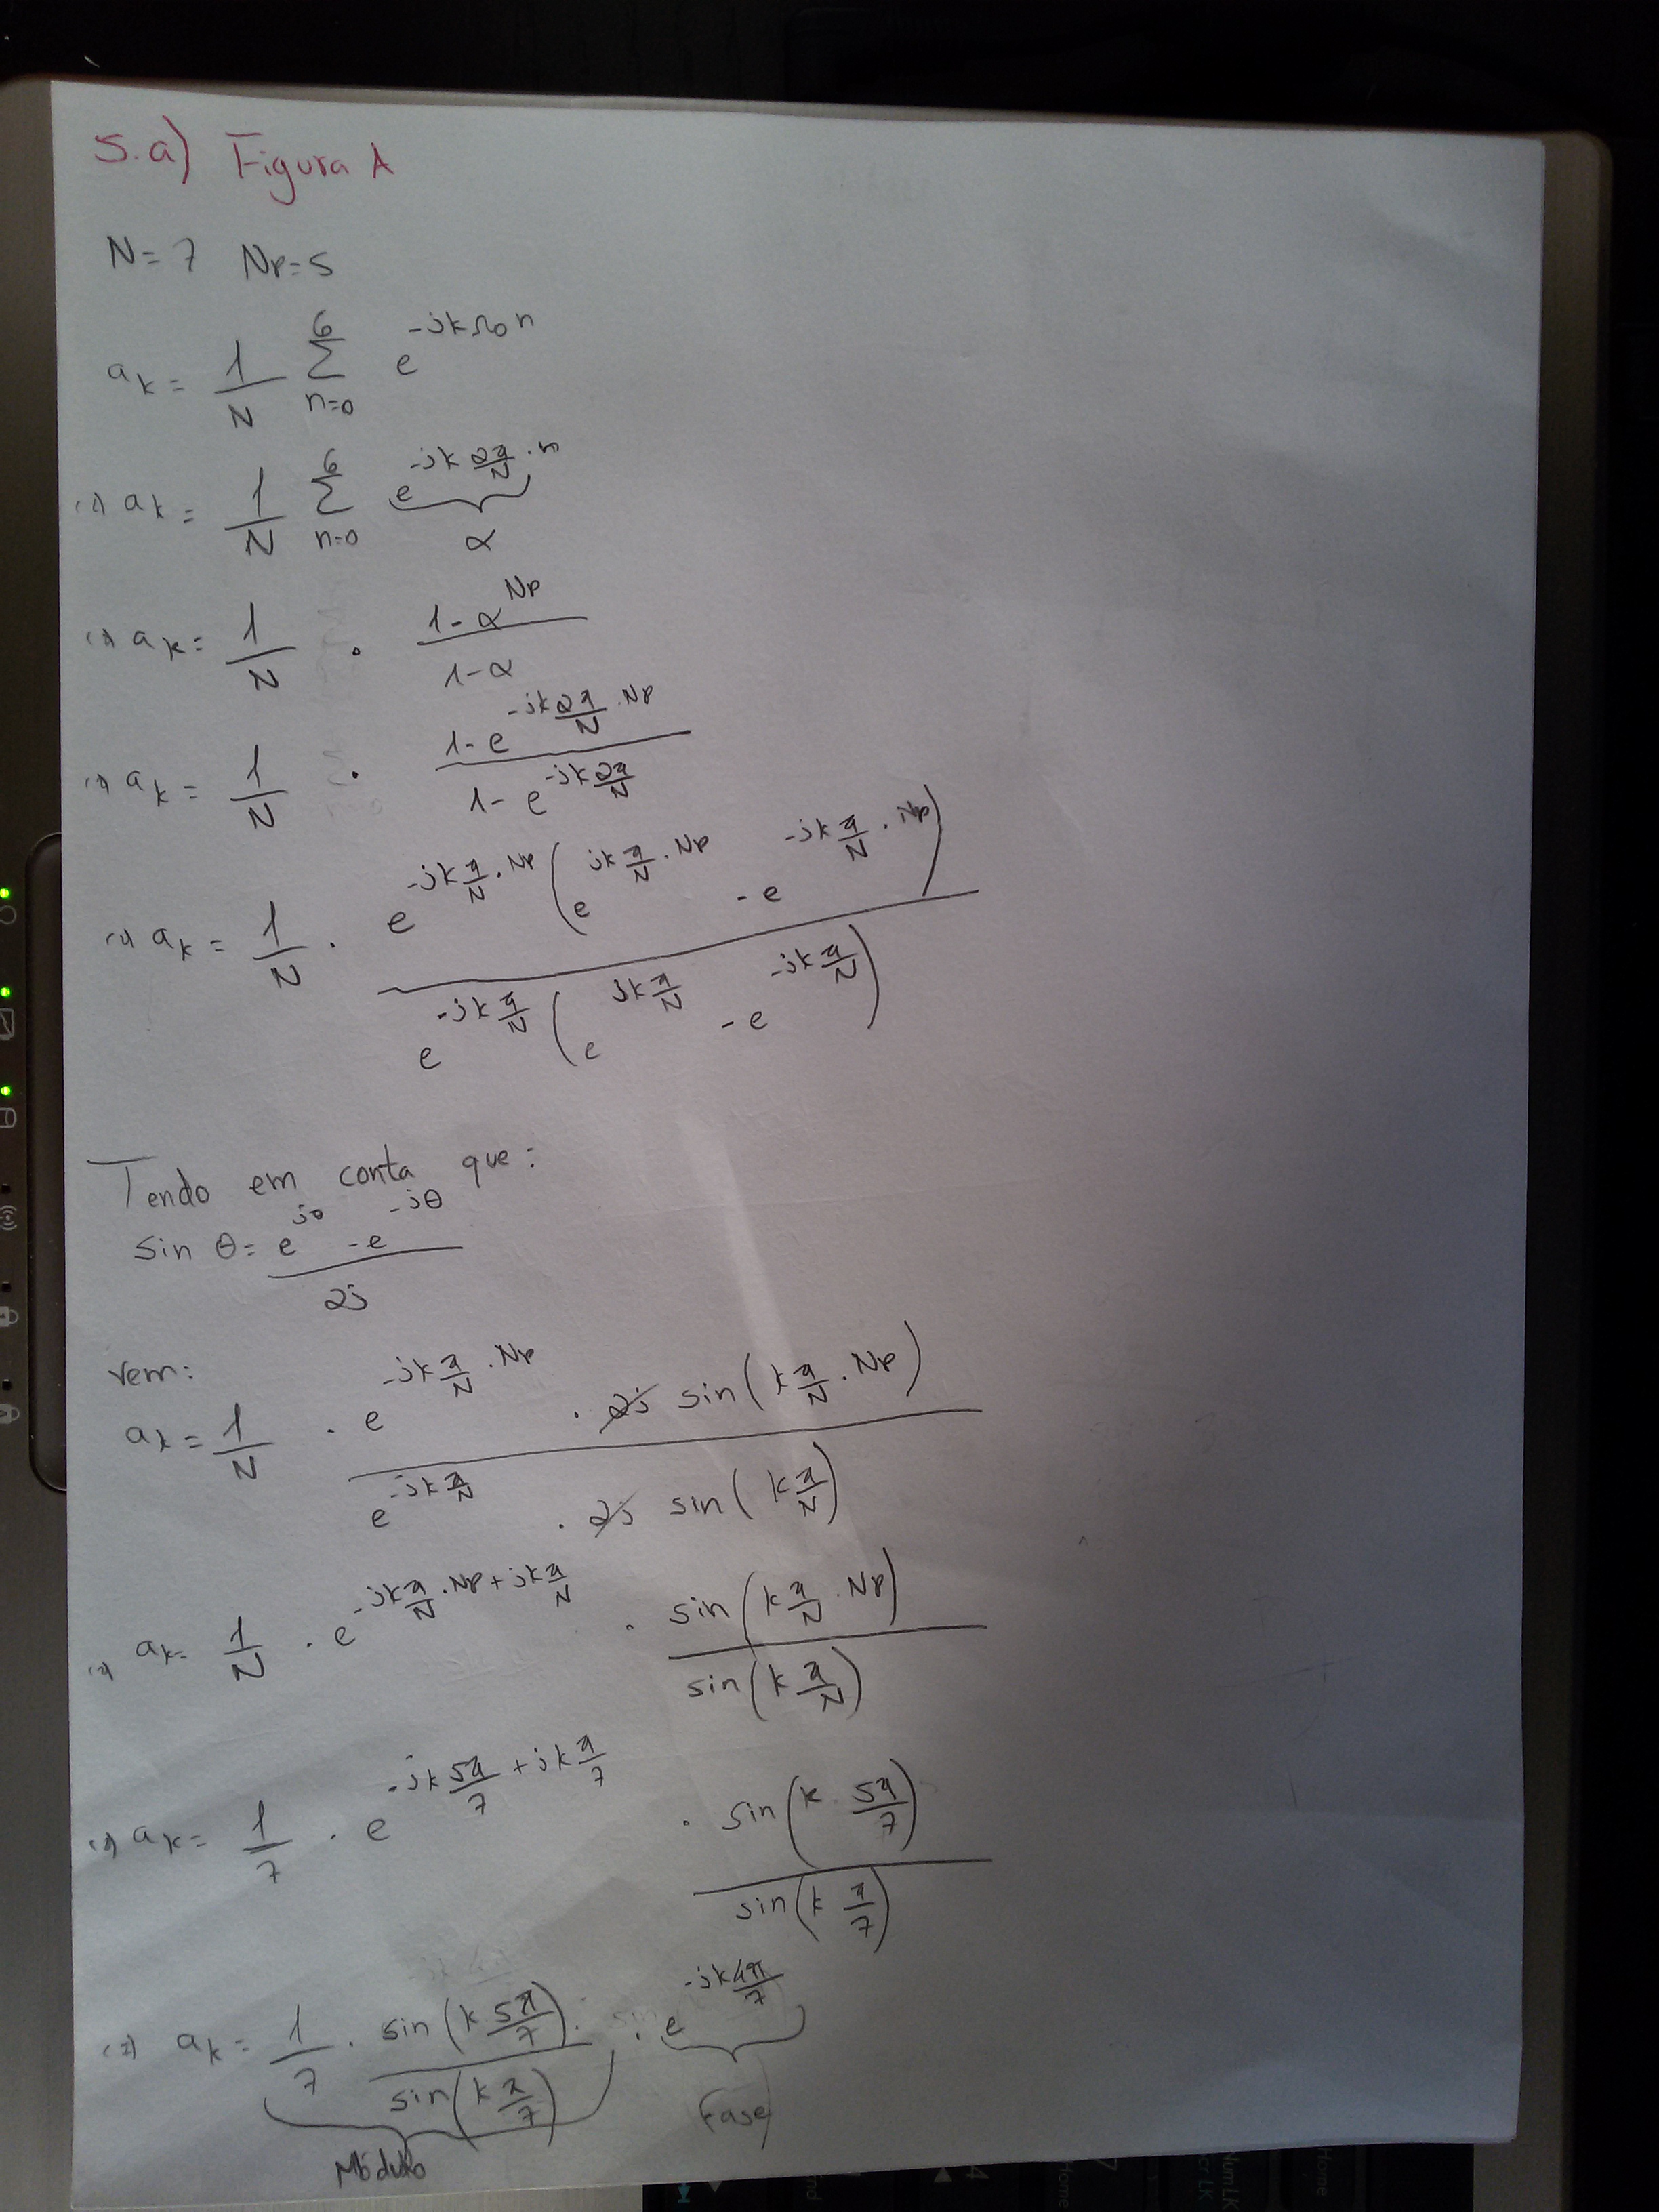 5.a) Figura A
N=7 Np=5
a_k = 1/N Σ_{n=0}^{6} e^{-jkΩ0n}
(=) a_k = 1/N Σ_{n=0}^{6} e^{-jk 2π/N · n}
α
(=) a_k = 1/N · (1-α^{Np})/(1-α)
(=) a_k = 1/N · (1-e^{-jk 2π/N · Np})/(1-e^{-jk 2π/N})
(=) a_k = 1/N · e^{-jk π/N · Np}(e^{jk π/N · Np} - e^{-jk π/N · Np})/e^{-jk π/N}(e^{jk π/N} - e^{-jk π/N})
Tendo em conta que:
sin θ = (e^{jθ} - e^{-jθ})/2j
vem:
a_k = 1/N · (e^{-jk π/N · Np} · 2j sin(k π/N · Np))/(e^{-jk π/N} · 2j sin(k π/N))
(=) a_k = 1/N · e^{-jk π/N · Np + jk π/N} · sin(k π/N · Np)/sin(k π/N)
(=) a_k = 1/7 · e^{-jk 5π/7 + jk π/7} · sin(k · 5π/7)/sin(k π/7)
(=) a_k = 1/7 · sin(k 5π/7)/sin(k π/7) · e^{-jk 4π/7}
Módulo Fase